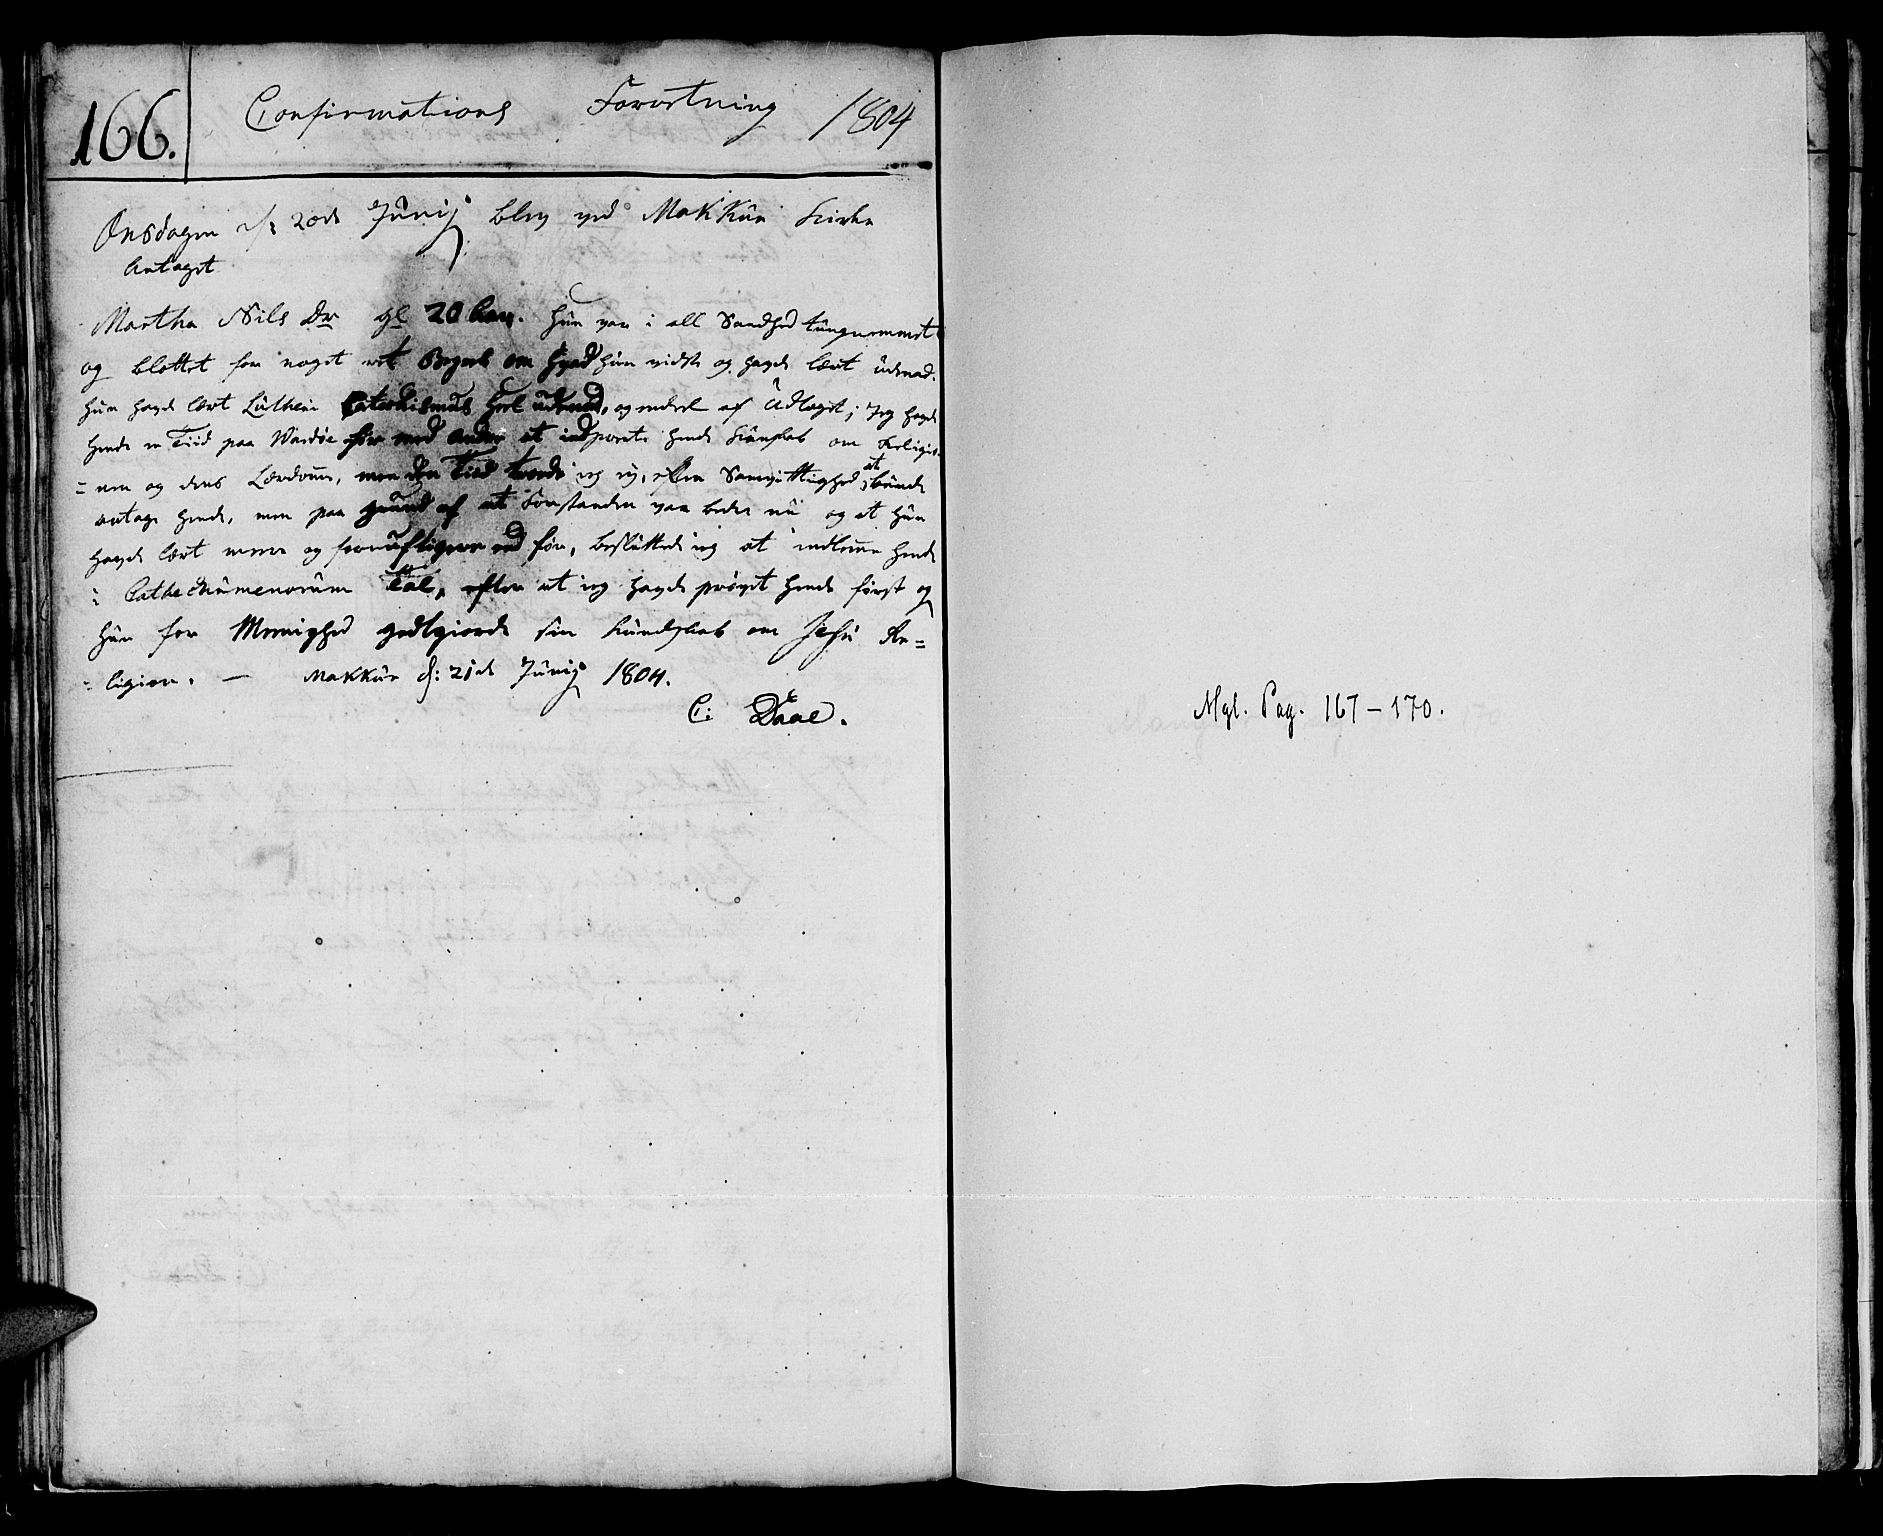 166.
Confirmations Forretning 1804
Onsdagen d: 20de Junij blev ved Makkur Kirke
Antaget
Martha Nils Dr gl 20 Aar. Hun var i all Sandhed tungnemmet
og blottet for noget ret Begreb om hvad hun vidste og havde lært udenad.
Hun havde lært Lutheri Catechismus heel udenad, og endeel af Udtoget; Jeg havde
hende en Tiid paa Wardöe før med Andre at indprente hende Kundskab om Religio-
= nen og dens Lærdomme, men den Tiid torde jeg ej, efter Samvittighed, at kunde
antage hende, men paa grund af at Forstanden var bedre nu og at hun
havde lært mere og fornuftigere end før, besluttede jeg at indlemme hende
i Cathechumenorum Tal, efter at jeg havde prövet hende først og
hun for Menighed godtgiorde sin Kundskab om Jesu Re=
= ligion. — Makkur d: 21de Junij 1804.
C: Daae.
Mgl. Pag. 167 – 170.